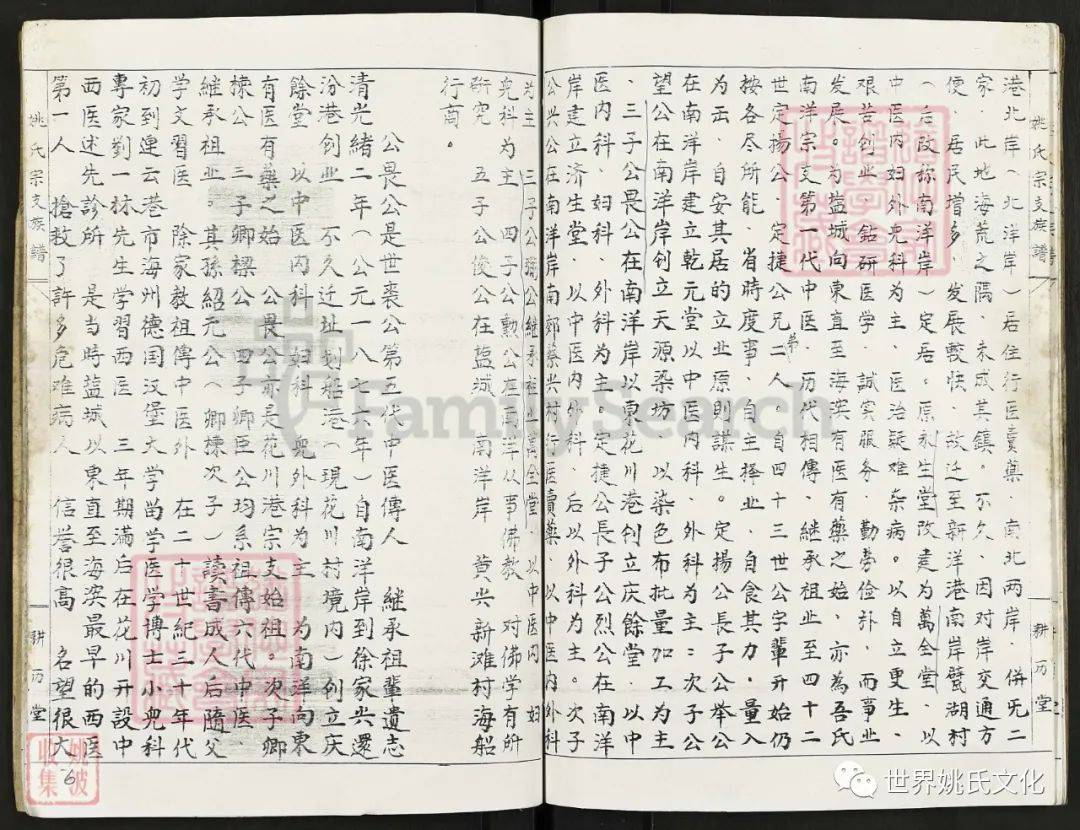 姚氏宗支族譜
耕历堂
港北岸（北洋岸）居住行医賣藥．南北两岸．併旡二
家．此地海荒之隅．未成其鎮。不久．因对岸交通方
便．居民增多．发展較快．故迁至新洋港南岸甓湖村
（后改称南洋岸）定居。原利生堂改建为萬全堂．以
中医内妇外児科为主．医治疑难杂病。以自立更生．
艰苦创业．鉆研医学．誠实服务．勤劳俭朴．而事业
发展。为盐城向東直至海滨有医有藥之始．亦為吾氏
南洋宗支第一代中医．历代相傳．継承祖业至四十二
世定揚公．定捷公兄弟二人。自四十三世公字輩开始仍
按各尽所能．省時度事．自主择业．自食其力．量入
为出．自安其居的立业原則謀生。定揚公長子公举公
在南洋岸建立乾元堂以中医内科．外科为主：次子公
望公在南洋岸创立天源染坊．以染色布批量加工为主
．三子公畏公在南洋岸以東花川港创立庆餘堂．以中
医内科．妇科．外科为主。定捷公長子公烈公在南洋
岸建立济生堂．以中医内外科．后以外科为主。次子
公兴公在南洋岸南郊藥兴村行医賣藥．以中医内外科
为主　三子公　公継承祖业萬全堂．以中医内．妇
児科为主　四子公勲公在南洋以事佛教　对佛学有所
研究　五子公俊公在盐城　南洋岸　黄尖新滩村海船
行商。
公畏公是世裘公第五代中医傳人　継承祖輩遺志
清光緒二年（公元一八七六年）自南洋岸到徐家尖還
汾港创业　不久迁址划船港（現花川村境内）创立庆
餘堂　以中医内科　妇科　児外科为主　为南洋向東
有医有藥之始　公畏公亦是花川港宗支始祖。次子卿
楝公　三子卿樑公　四子卿臣公均系祖傳六代中医．
継承祖业。其孫紹元公（卿楝次子）讀書成人后隨父
学文習医　除家教祖傳中医外　在二十世紀三十年代
初到連云港市海州德国汉堡大学畄学医学博士小児科
專家劉一林先生学習西医　三年期满后在花川开設中
西医述先診所　是当時盐城以東直至海滨最早的西医
第一人　搶救了許多危难病人　信誉很高　名望很大
姚氏宗支族譜
耕历堂
6
姚波收集
FamilySearch
世界姚氏文化